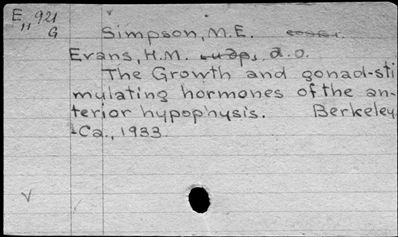 E,, 921
G
Simpson, M.E.
Evans, H.M. d.o.
The Growth and gonad-sti
mulating hormones of the an-
terior hypophysis. Berkeley
-Ca., 1933